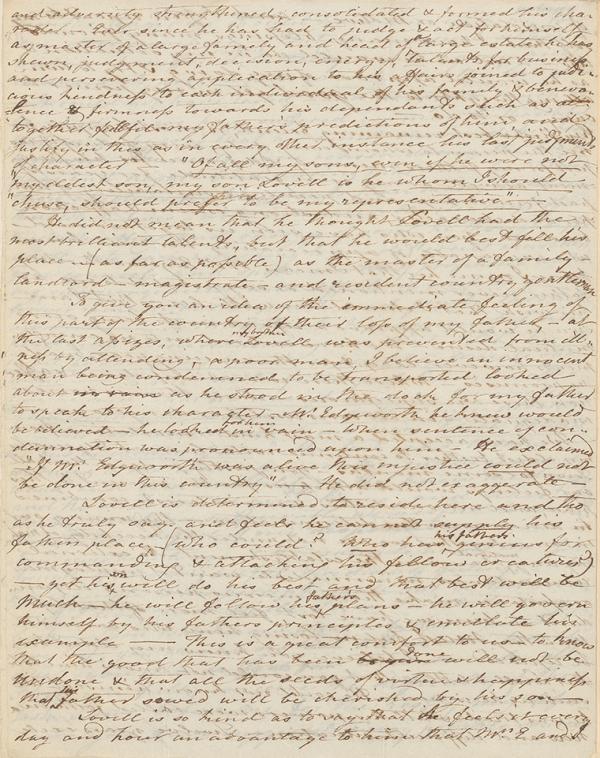 and adversity strengthened, consolidated & formed his cha-
racter — Ever since he has had to judge & act for himself
as master of a large family and head of a large estate he has
shewn, judgement, decision, energy, talents for business
and persevering application to his affairs joined to judi-
cious kindness to each individual of his family & benevo-
lence & firmness towards his dependants which as al-
together fulfil my father's prediction of him and
justify in this as in every other instance his last judgment
of character " "Of all my sons, even if he were not
"my eldest son, my son Lovell is he whom I should
"chuse, should prefer to be my representative" —
He did not mean that he thought Lovell had the
most brilliant talents, but that he would best fill his
place — (as far as possible) as the master of a family —
landlord — magistrate — and resident country gentleman
To give you an idea of the immediate feeling of
this part of the country of their loss of my father, — at
the last assizes, where my brother Lovell was prevented from ill-
ness by attending, a poor man, I believe an innocent
man being condemned to be transported looked
about in vain as he stood in the dock for my father
to speak to his character — Mr. Edgeworth he knew would
be believed — he looked for him in vain — When sentence of con-
demnation was pronounced upon him — He exclaimed
"If Mr. Edgeworth was alive this injustice could not
be done in this country" — He did not exaggerate —
Lovell is determined to reside here and tho
as he truly says and feels he cannot supply his
fathers place, (who could? Who has his father's genius for
commanding & attaching his fellow creatures)
— yet he will do his best and that best will be
Much — he will follow his fathers plans — he will govern
himself by his fathers principles & emulate his
example — This is a great comfort to us — to know
that the good that has been done will not be
undone & that all the seeds of virtue & happiness
that his father sowed will be cherished by his son —
Lovell is so kind as to say that he feels it every
day and hour an advantage to him that Mrs E and I